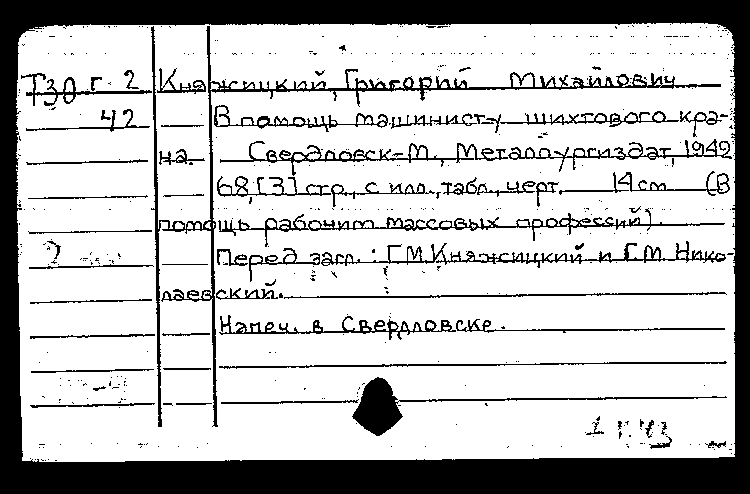 Т30 г. 2 Княжицкий, Григорий Михайлович
42 В помощь машинисту шихтового кра-
на. Свердловск-М., Металлургиздат, 1942
68,[3] стр., с илл., табл., черт. 14 см (В
помощь рабочим массовых профессий).
Перед загл.: Г.М.Княжицкий и Г.М. Нико-
лаевский.
Напеч. в Свердловске.